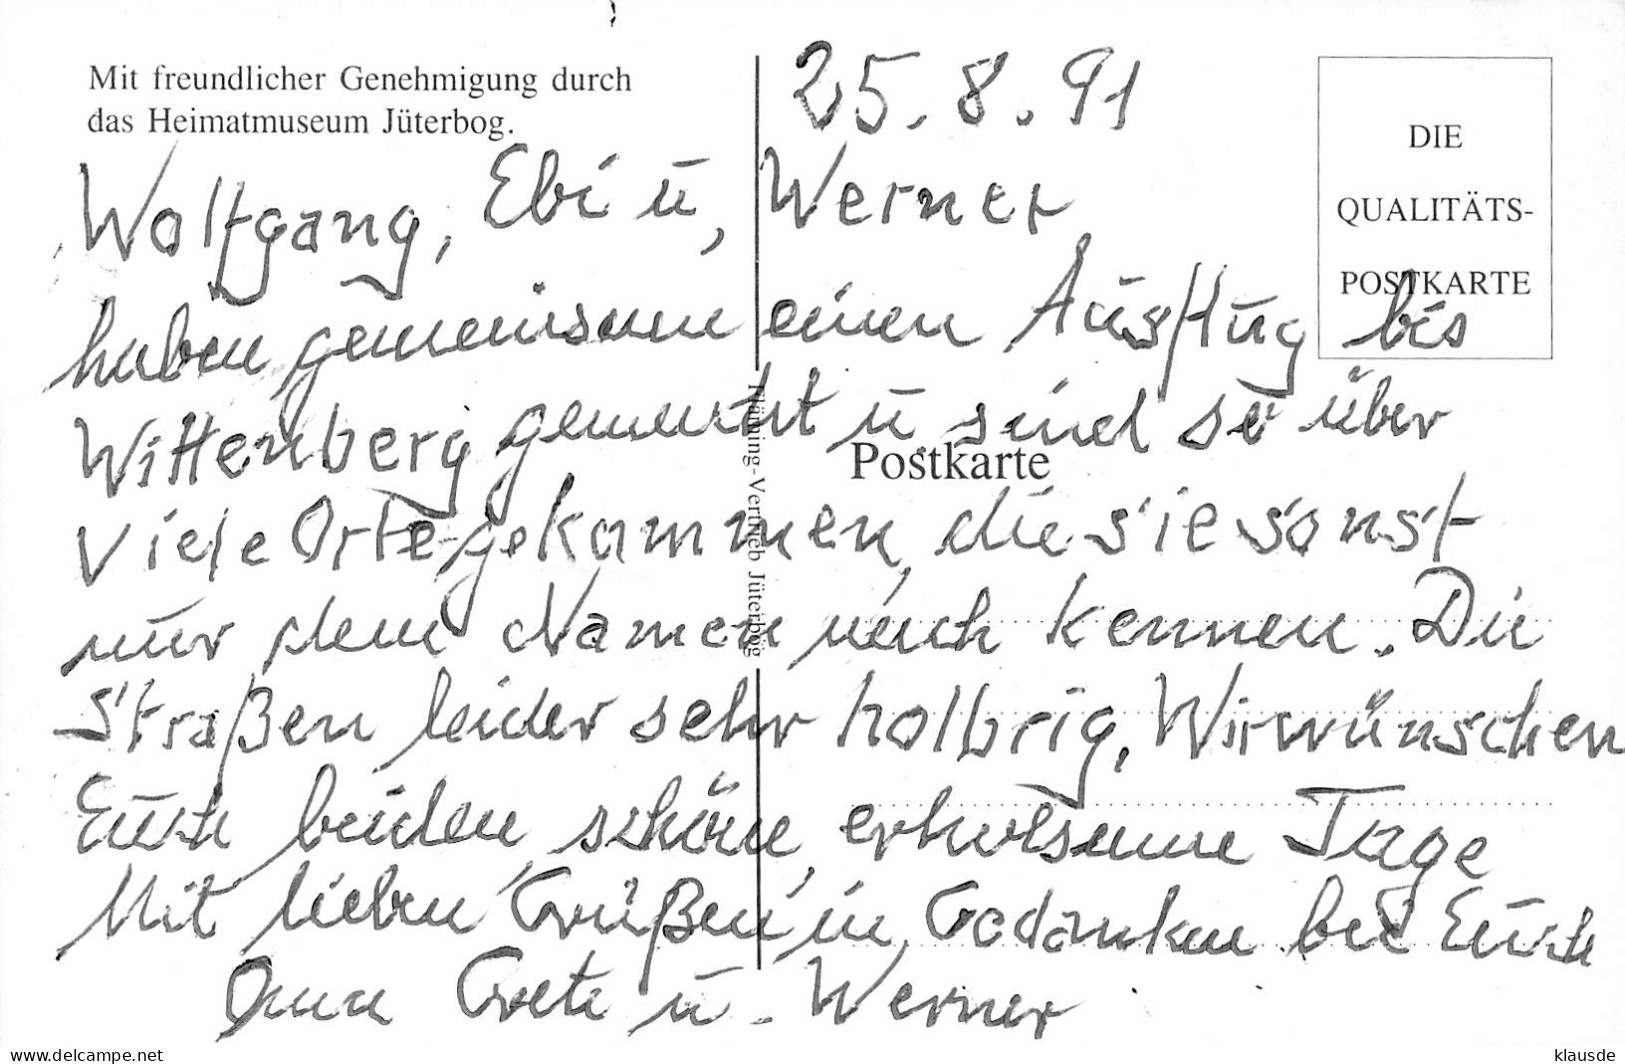 Mit freundlicher Genehmigung durch
das Heimatmuseum Jüterbog.
25.8.91
DIE
QUALITÄTS-
POSTKARTE
Wolfgang, Ebi u, Werner
haben gemeinsam einen Ausflug bis
Wittenberg gemacht u sind so über
Viele Orte gekommen, die sie sonst
nur dem Namen nach kennen. Die
Straßen leider sehr holbrig, Wir wünschen
Euch beiden schöne, erholsame Tage
Mit lieben Grüßen, in Gedanken bei Euch
Oma Grete u. Werner
Postkarte
Fläming-Vertrieb Jüterbog
www.delcampe.net
klausde